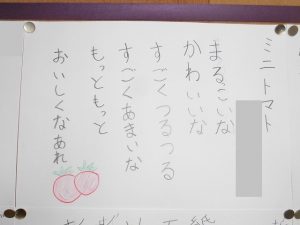 ミニトマト
まるこいな
かわいいな
すごくつるつる
すごくあまいな
もっともっと
おいしくなあれ